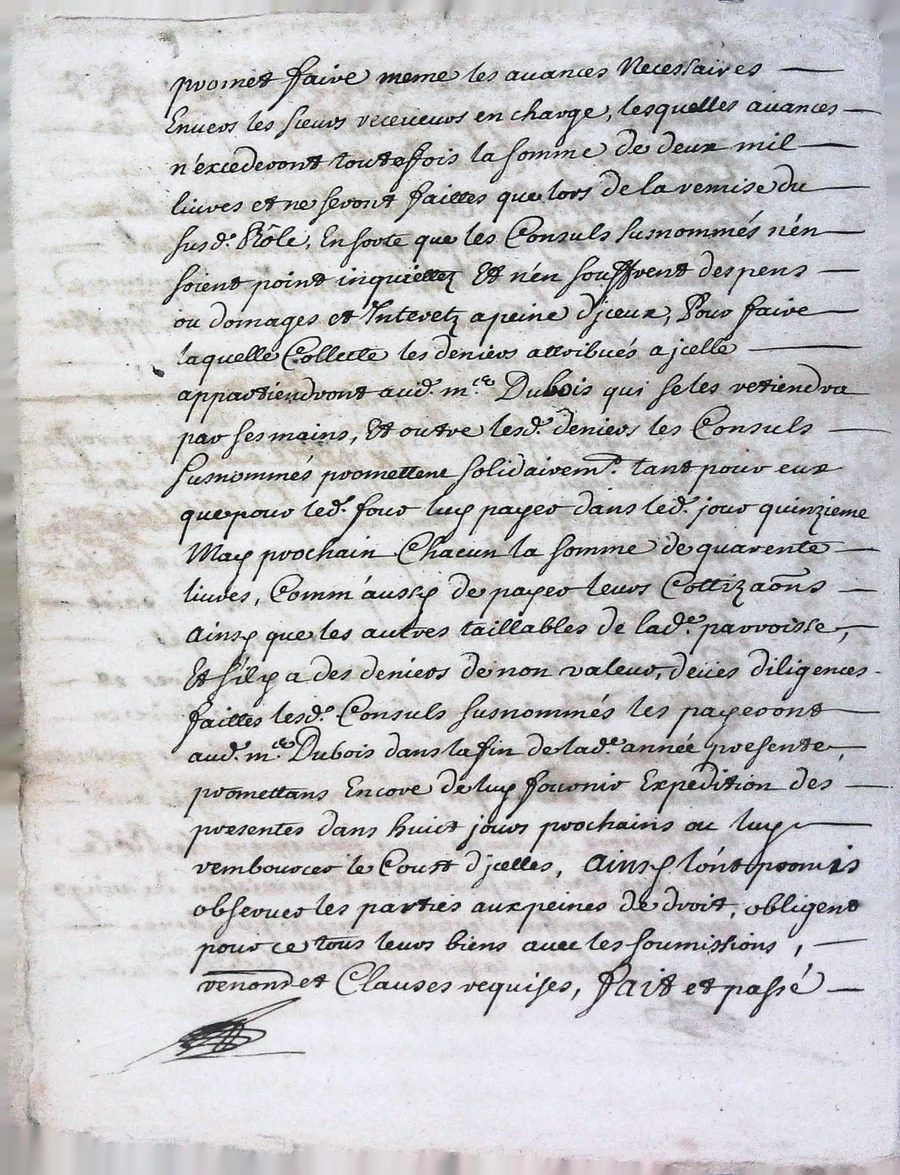 promet faire meme les auances Necessaires
Enuers les sieurs receueurs en charge, lesquelles auances
n'excederont toutesfois la somme de deux mil
liures et ne seront faittes que lors de la remise du
susd. Rôle, En sorte que les Consuls susnommés n'en
soient point inquiettez Et n'en souffrent despens
ou domages et Interetz a peine d'jceux, Pour faire
laquelle Collecte les deniers attribués a jcelle
appartiendront aud. me. Dubois qui se les retiendra
par ses mains, Et outre lesd. deniers les Consuls
susnommés promettent solidairemt. tant pour eux
que pour led. four luy payer dans led. jour quinzieme
May prochain Chacun la somme de quarente
liures, Comm'aussy de payer leurs Cottizaõns
Ainsy que les autres taillables de lade. parroisse,
Et s'il y a des deniers de non valeur, diligences
faittes lesd. Consuls susnommés les payeront
aud. me. Dubois dans la fin de lade. année presente
promettans Encore de luy fournir Expedition des
presentes dans huict jours prochains ou luy
rembourcer le Coust d'jcelles, Ainsy l'ont promis
obseruer les parties aux peines de droit, obligent
pour ce tous leurs biens auec les soumissions,
renonõns et Clauses requises, fait et passé